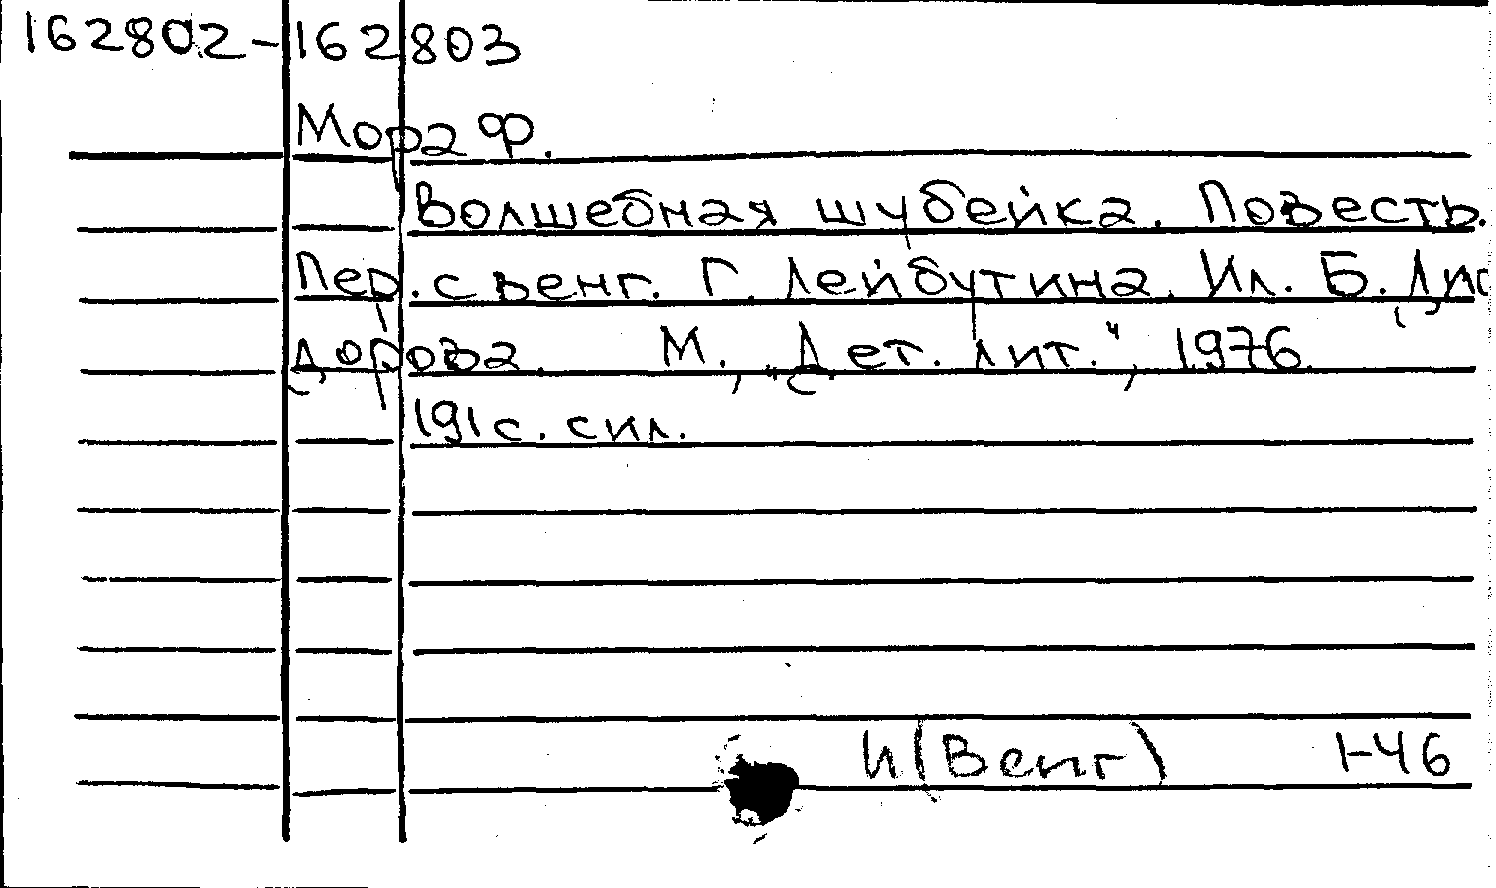 162802-162803
Мора Ф.
Волшебная шубейка. Повесть.
Пер. с венг. Г. Лейбутина. Ил. Б. Дио
дорова. М., „Дет. лит.", 1976.
191 с. с ил.
И(Венг) 1-46